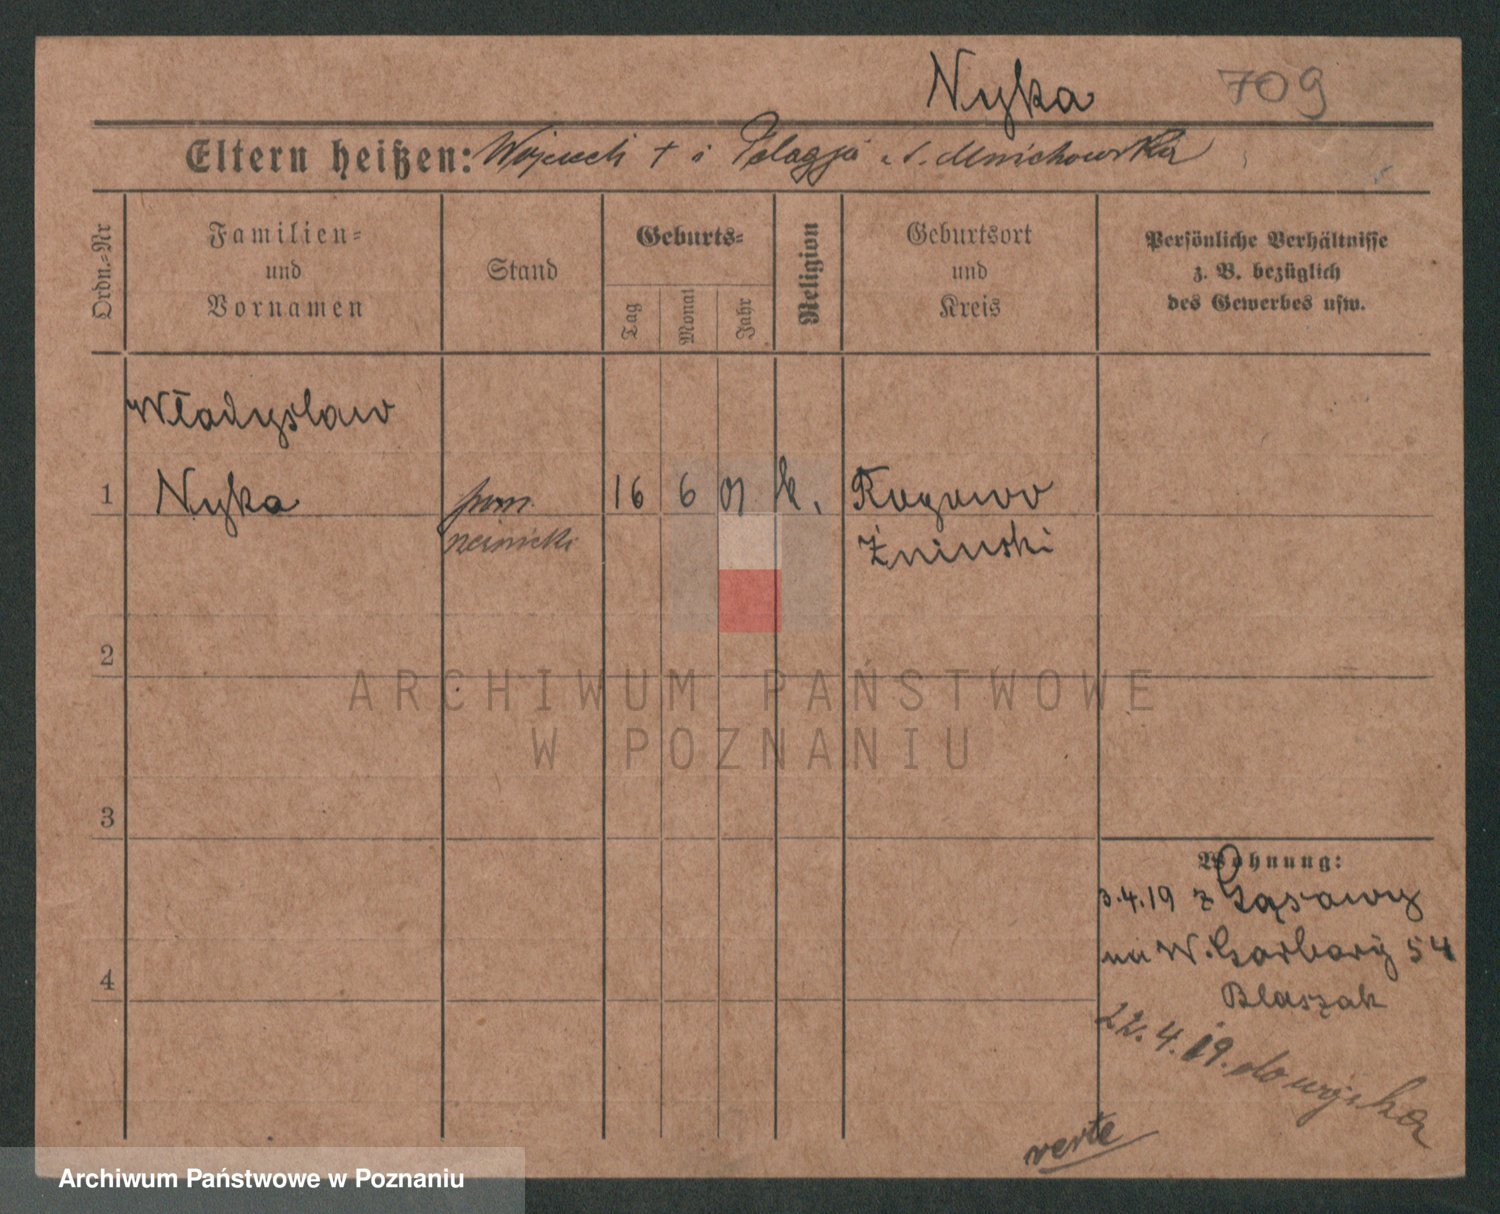 Nyka 709
Eltern heißen: Wojciech + i Pelagja z d. Mnichowska
Ordn.-Nr
Familien-
und
Vornamen
Stand
Geburts-
Tag
Monat
Jahr
Religion
Geburtsort
und
Kreis
Persönliche Verhältnisse
z. B. bezüglich
des Gewerbes usw.
Władysław
1 Nyka 16 6 01 k. Rogowo
Żninski
2
3
4
Wohnung:
3.4.19 z Gąsawy
na W. Garbary 54
Blaszak
22.4.19. do wojska
verte
ARCHIWUM PAŃSTWOWE
W POZNANIU
Archiwum Państwowe w Poznaniu